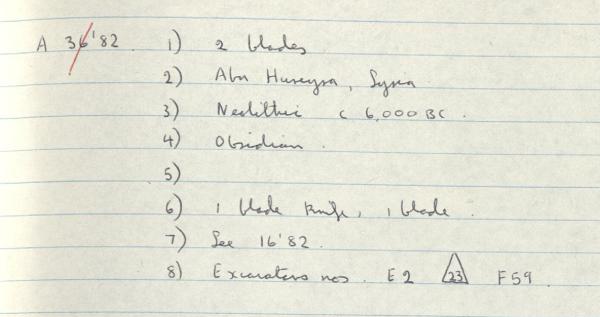 A 36'82. 1) 2 blades
2) Abu Hureyra, Syria
3) Neolithic c 6,000 BC.
4) Obsidian.
5)
6) 1 blade knife, 1 blade.
7) See 16'82.
8) Excavators nos. E2 23 F59.